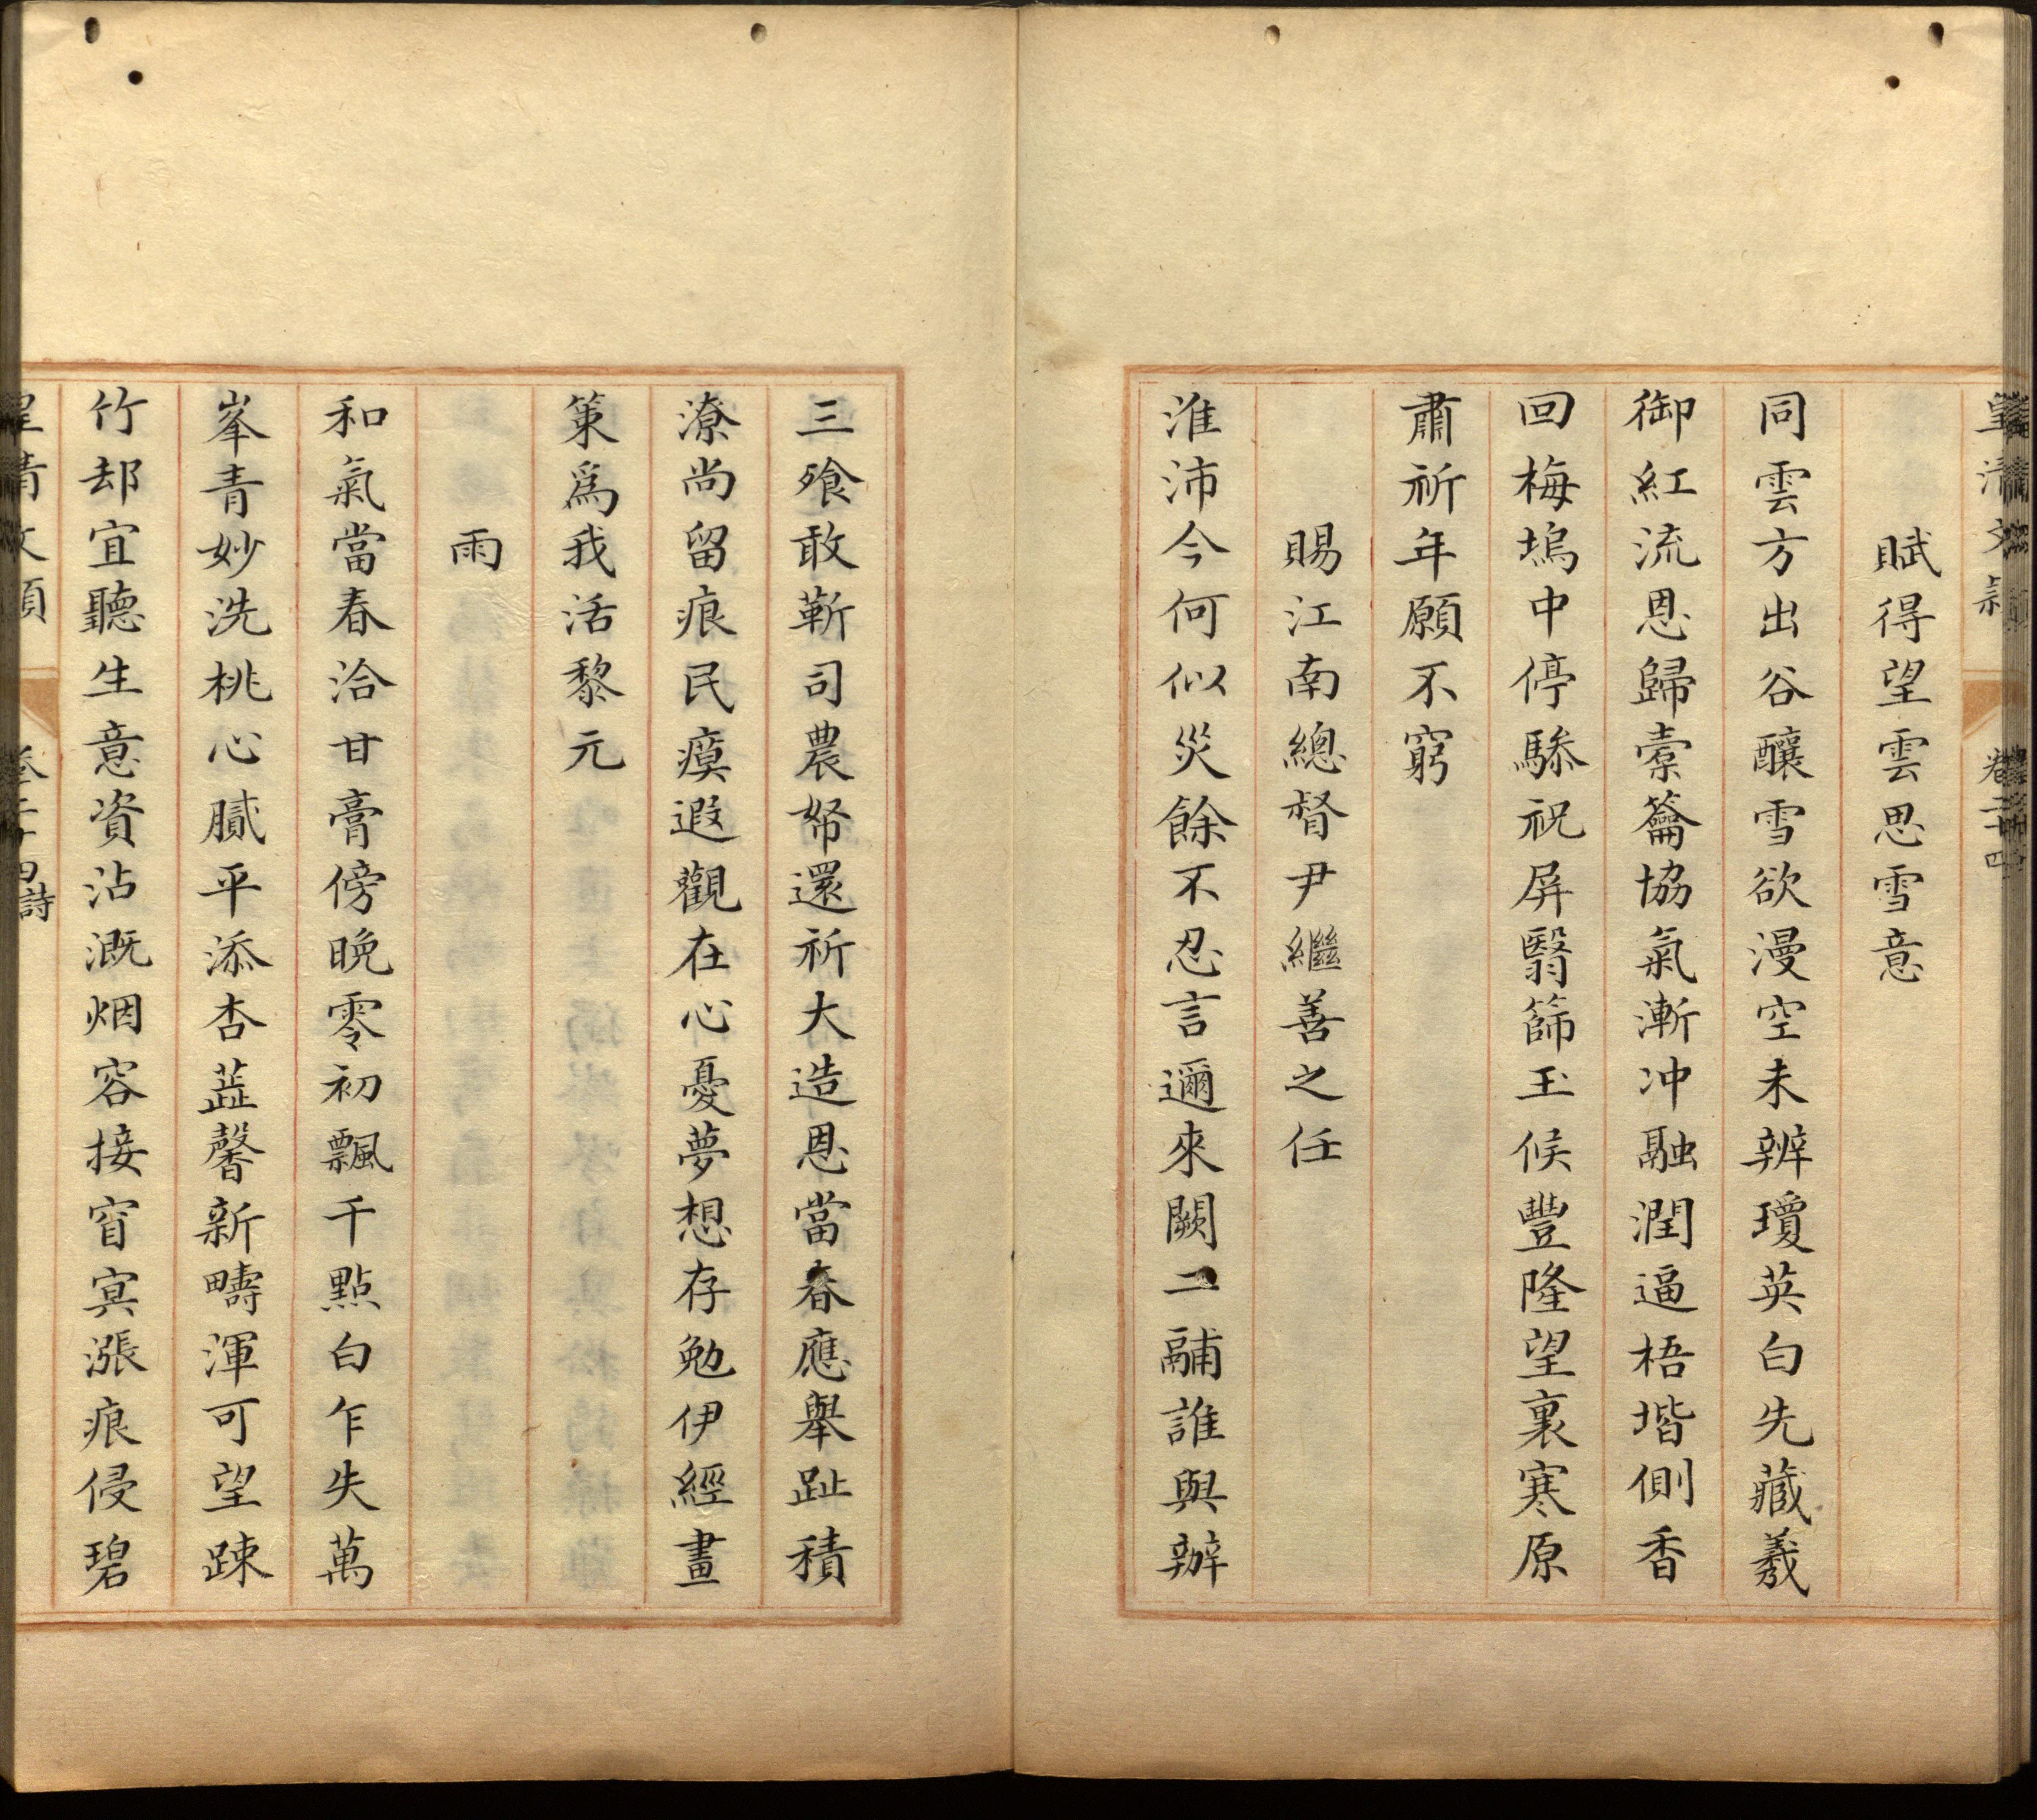 皇清文穎 卷二十四
賦得望雲思雪意
同雲方出谷釀雪欲漫空未辨瓊英白先藏羲
御紅流恩歸橐籥協氣漸冲融潤逼梧堦側香
回梅塢中停驂祝屏翳篩玉候豐隆望裏寒原
肅祈年願不窮
賜江南總督尹繼善之任
淮沛今何似災餘不忍言邇來闕二鬴誰與辦
三飱敢靳司農帑還祈大造恩當春應舉趾積
潦尚留痕民瘼遐觀在心憂夢想存勉伊經畫
策爲我活黎元
雨
和氣當春洽甘膏傍晚零初飄千點白乍失萬
峯青妙洗桃心膩平添杏蘂馨新疇渾可望踈
竹却宜聽生意資沾溉烟容接窅冥漲痕侵碧
皇清文穎 卷二十四詩